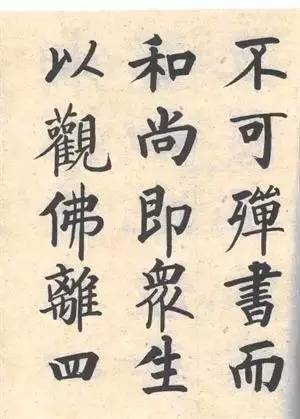 不可殫書而
和尚即衆生
以觀佛離四